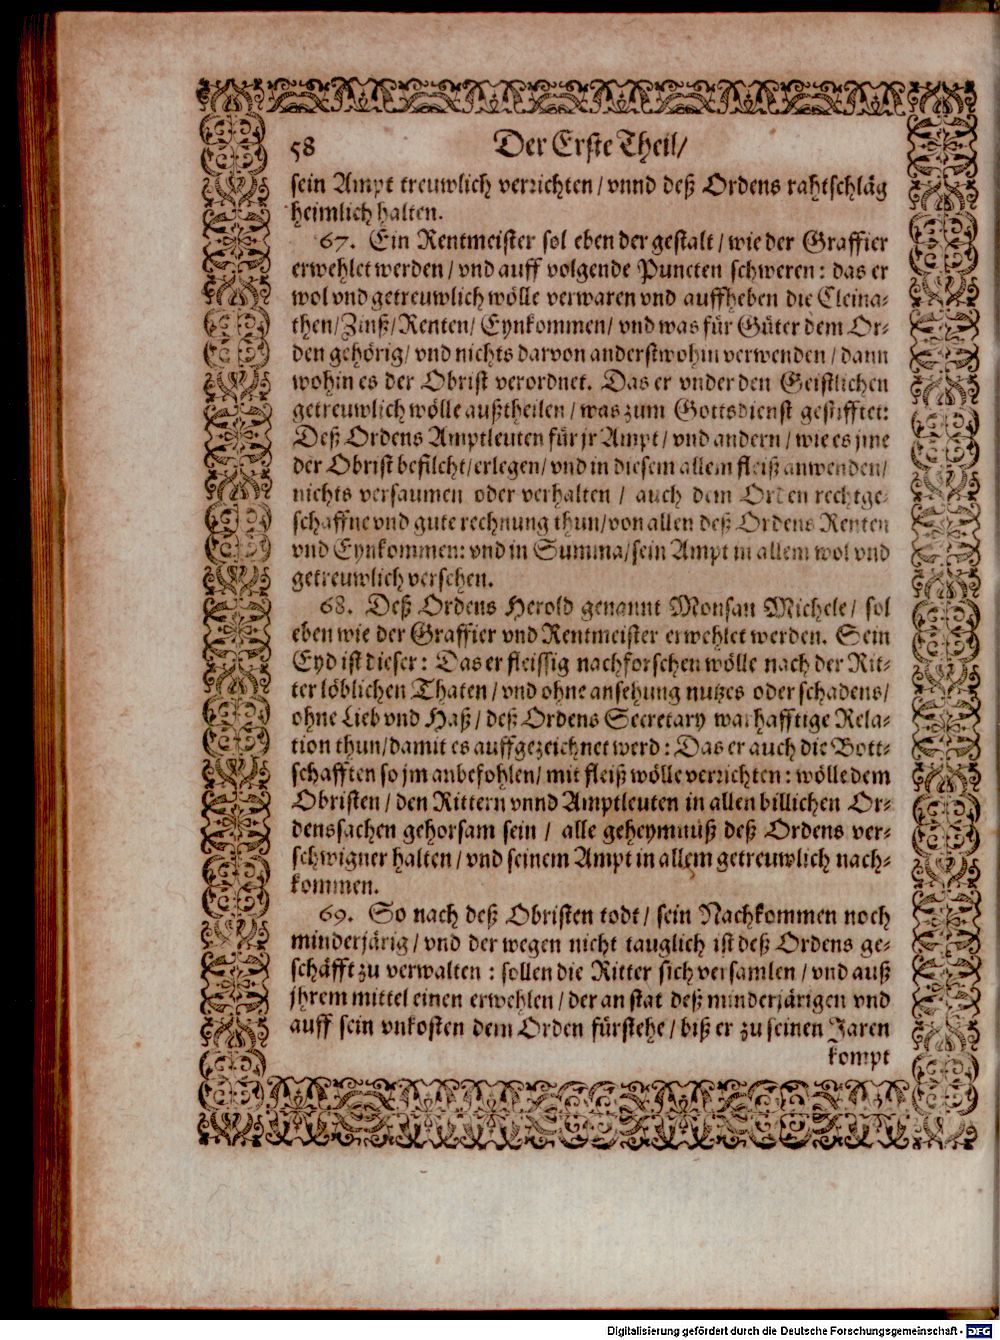 58 Der Erste Theil/
sein Ampt treuwlich verrichten / vnnd deß Ordens rahtschläg
heimlich halten.
67. Ein Rentmeister sol eben der gestalt / wie der Graffier
erwehlet werden / vnd auff volgende Puncten schweren: das er
wol vnd getreuwlich wölle verwaren vnd auffheben die Cleina-
then/Zinß/Renten/ Eynkommen/ vnd was für Güter dem Or-
den gehörig/ vnd nichts darvon anderstwohin verwenden / dann
wohin es der Obrist verordnet. Das er vnder den Geistlichen
getreuwlich wölle außtheilen / was zum Gottsdienst gestifftet:
Deß Ordens Amptleuten für jr Ampt / vnd andern / wie es jme
der Obrist befilcht/erlegen/ vnd in diesem allem fleiß anwenden/
nichts versaumen oder verhalten / auch dem Orden rechtge-
schaffne vnd gute rechnung thun/von allen deß Ordens Renten
vnd Eynkommen: vnd in Summa/sein Ampt in allem wol vnd
getreuwlich versehen.
68. Deß Ordens Herold genannt Monsan Michele/ sol
eben wie der Graffier vnd Rentmeister erwehlet werden. Sein
Eyd ist dieser: Das er fleissig nachforschen wölle nach der Rit-
ter löblichen Thaten / vnd ohne ansehung nutzes oder schadens/
ohne Lieb vnd Haß / deß Ordens Secretary warhafftige Rela-
tion thun/damit es auffgezeichnet werd : Das er auch die Bott-
schafften so jm anbefohlen/ mit fleiß wölle verrichten: wölle dem
Obristen / den Rittern vnnd Amptleuten in allen billichen Or-
denssachen gehorsam sein / alle geheymnuß deß Ordens ver-
schwigner halten / vnd seinem Ampt in allem getreuwlich nach-
kommen.
69. So nach deß Obristen todt / sein Nachkommen noch
minderjärig / vnd der wegen nicht tauglich ist deß Ordens ge-
schäfft zu verwalten : sollen die Ritter sich versamlen / vnd auß
jhrem mittel einen erwehlen / der an stat deß minderjärigen vnd
auff sein vnkosten dem Orden fürstehe / biß er zu seinen Jaren
kompt
Digitalisierung gefördert durch die Deutsche Forschungsgemeinschaft - DFG